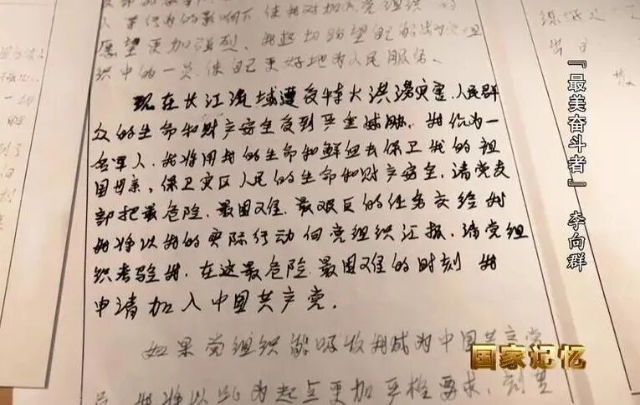 愿望更加强烈。我热切盼望自己能成为党组
织中的一员，使自己更好地为人民服务。
现在长江流域遭受特大洪涝灾害，人民群
众的生命和财产安全受到严重威胁。我作为一
名军人，我将用我的生命和鲜血去保卫我的祖
国母亲，保卫灾区人民的生命和财产安全，请党支
部把最危险、最困难、最艰巨的任务交给我
我将以我的实际行动向党组织汇报，请党组
织考验我，在这最危险 最困难的时刻 我
申请加入中国共产党。
如果党组织能吸收我成为中国共产党
我将以此为起点更加严格要求，刻苦
『最美奋斗者』 李向群
国家记忆